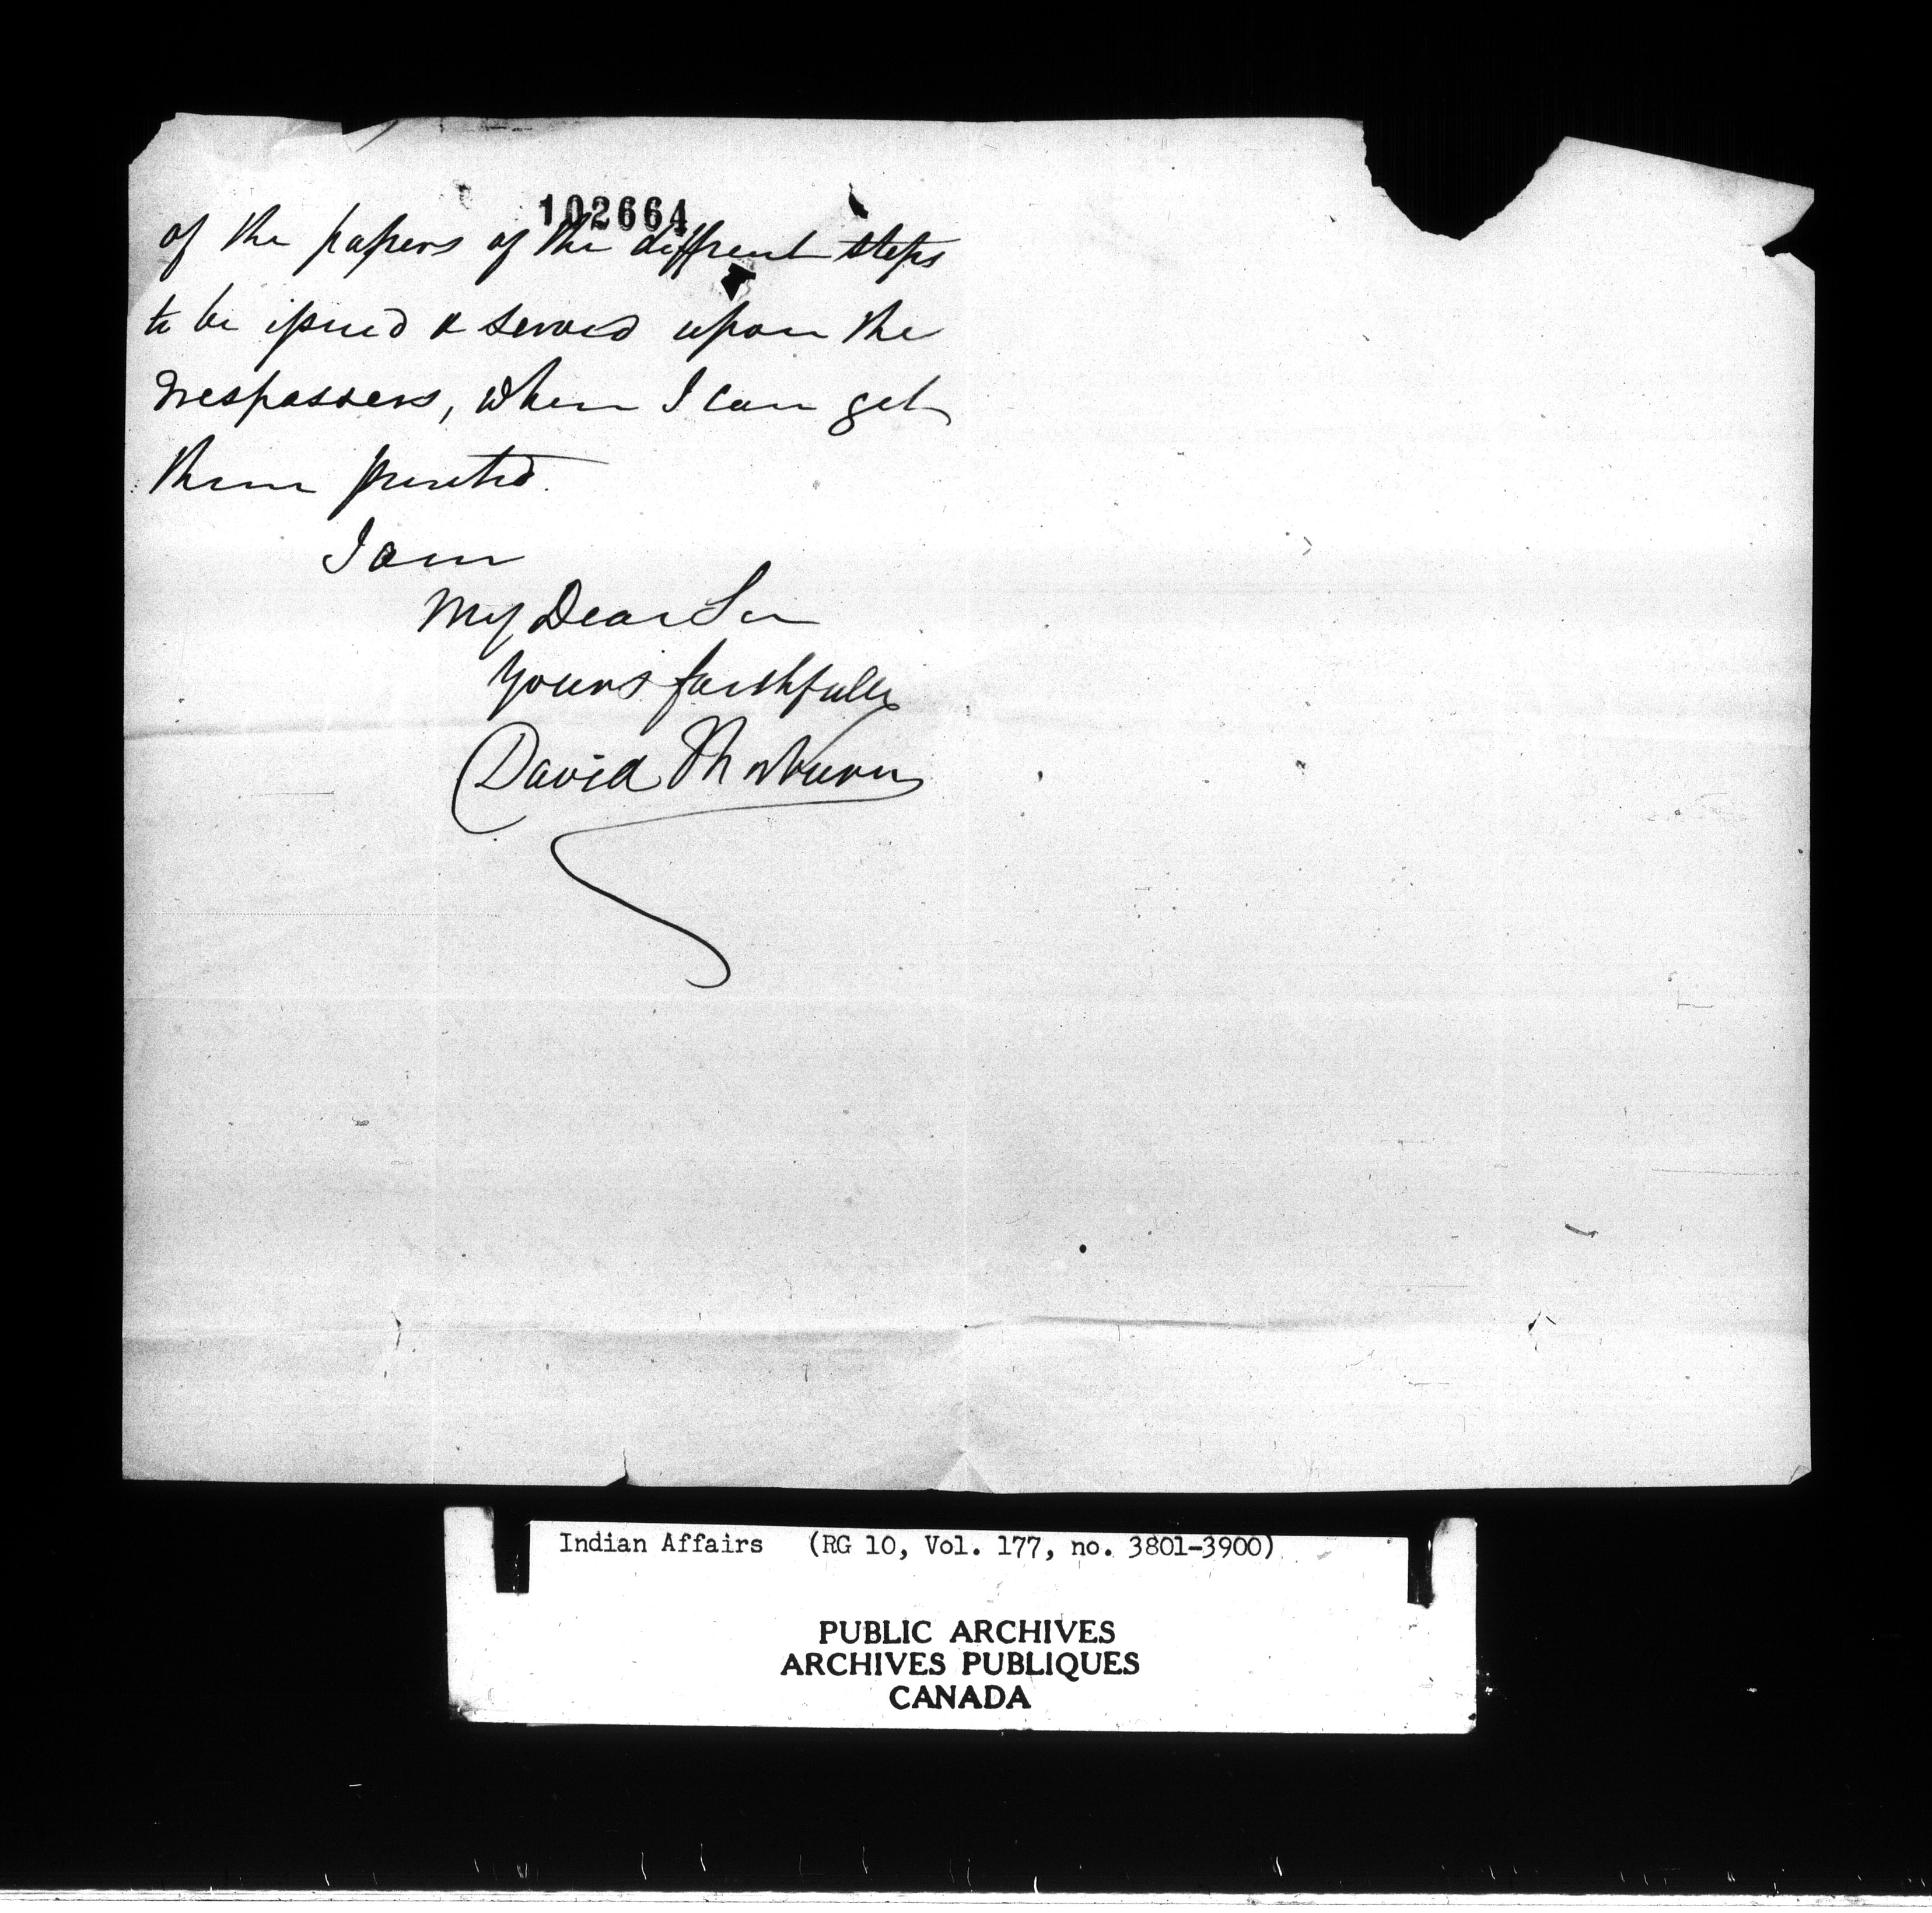 102664
of the papers of the different steps
to be issued & served upon the
trespassers, when I can get
them printed.
I am
My Dear Sir
Yours faithfully
David Thorburn
Indian Affairs (RG 10, Vol. 177, no. 3801-3900)
PUBLIC ARCHIVES
ARCHIVES PUBLIQUES
CANADA